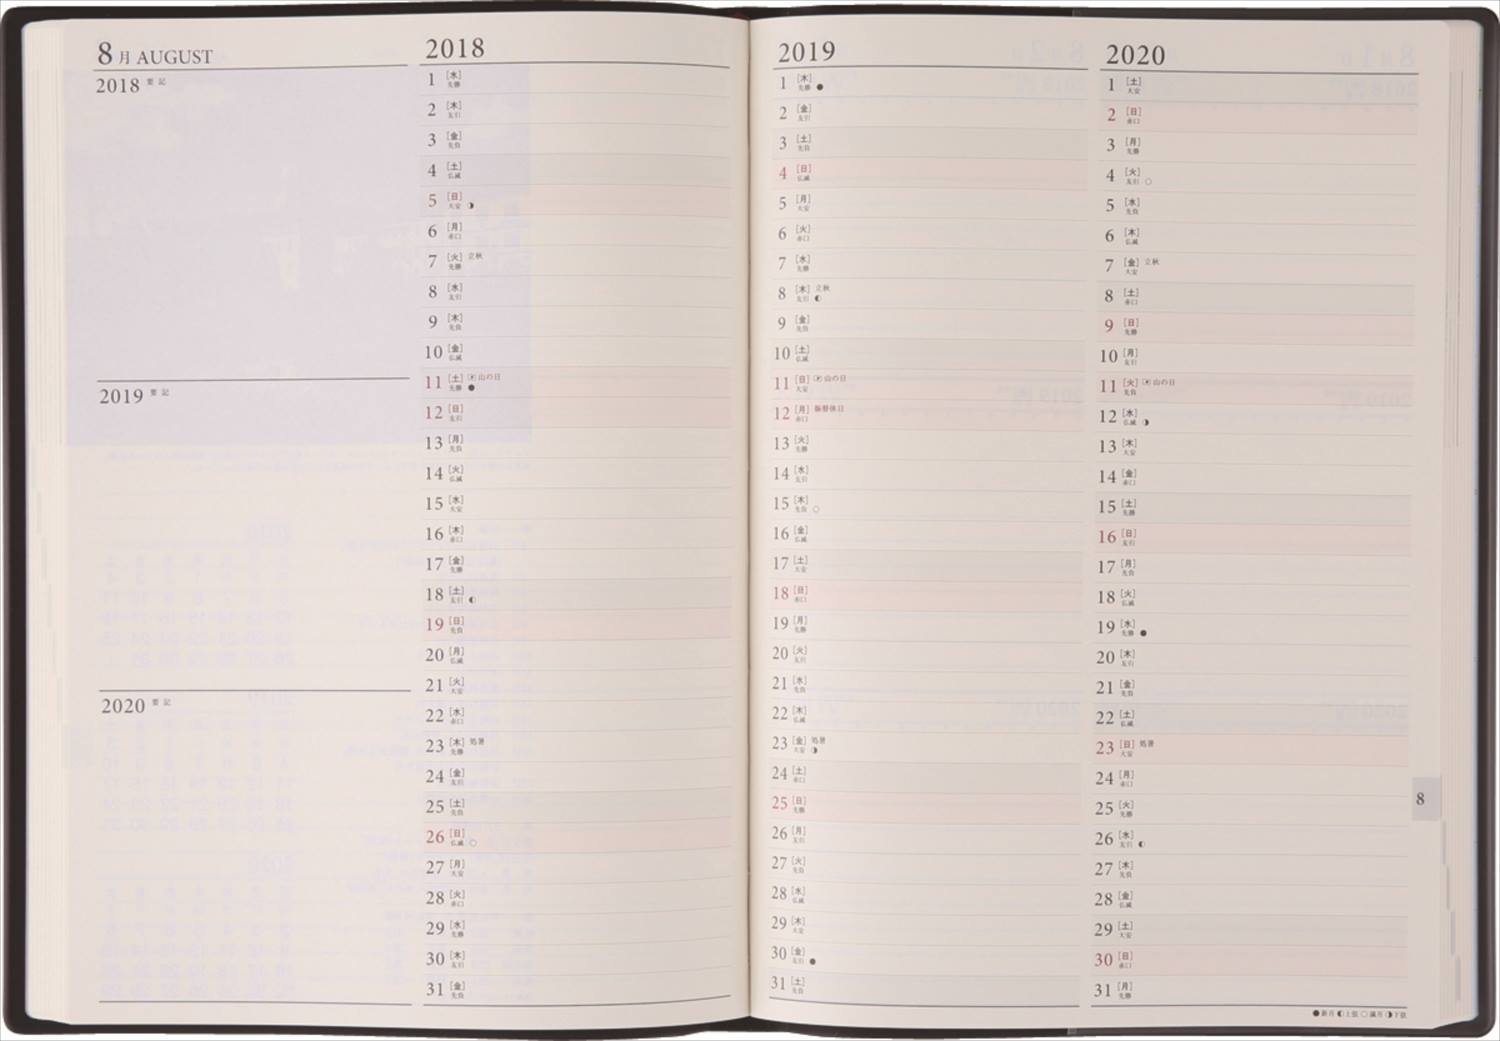 8月 AUGUST
2018 要記
2019 要記
2020 要記
2018
1 [水]
先勝
2 [木]
友引
3 [金]
先負
4 [土]
仏滅
5 [日]
大安 ◑
6 [月]
赤口
7 [火] 立秋
先勝
8 [水]
友引
9 [木]
先負
10 [金]
仏滅
11 [土] 山の日
先勝 ●
12 [日]
友引
13 [月]
先負
14 [火]
仏滅
15 [水]
大安
16 [木]
赤口
17 [金]
先勝
18 [土]
友引 ◐
19 [日]
先負
20 [月]
仏滅
21 [火]
大安
22 [水]
赤口
23 [木] 処暑
先勝
24 [金]
友引
25 [土]
先負
26 [日]
仏滅 ○
27 [月]
大安
28 [火]
赤口
29 [水]
先勝
30 [木]
友引
31 [金]
先負
2019
1 [木]
先勝 ●
2 [金]
友引
3 [土]
先負
4 [日]
仏滅
5 [月]
大安
6 [火]
赤口
7 [水]
先勝
8 [木] 立秋
友引 ◐
9 [金]
先負
10 [土]
仏滅
11 [日] 山の日
大安
12 [月] 振替休日
赤口
13 [火]
先勝
14 [水]
友引
15 [木]
先負 ○
16 [金]
仏滅
17 [土]
大安
18 [日]
赤口
19 [月]
先勝
20 [火]
友引
21 [水]
先負
22 [木]
仏滅
23 [金] 処暑
大安 ◑
24 [土]
赤口
25 [日]
先勝
26 [月]
友引
27 [火]
先負
28 [水]
仏滅
29 [木]
大安
30 [金]
友引 ●
31 [土]
先負
2020
1 [土]
大安
2 [日]
赤口
3 [月]
先勝
4 [火]
友引 ○
5 [水]
先負
6 [木]
仏滅
7 [金] 立秋
大安
8 [土]
赤口
9 [日]
先勝
10 [月]
友引
11 [火] 山の日
先負
12 [水]
仏滅 ◑
13 [木]
大安
14 [金]
赤口
15 [土]
先勝
16 [日]
友引
17 [月]
先負
18 [火]
仏滅
19 [水]
先勝 ●
20 [木]
友引
21 [金]
先負
22 [土]
仏滅
23 [日] 処暑
大安
24 [月]
赤口
25 [火]
先勝
26 [水]
友引 ◐
27 [木]
先負
28 [金]
仏滅
29 [土]
大安
30 [日]
赤口
31 [月]
先勝
8
●新月 ◐上弦 ○満月 ◑下弦